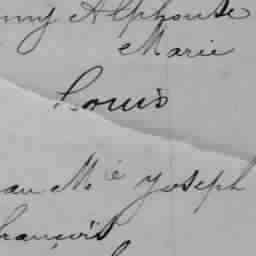 ny Alphonse
Marie
Louis
au M.ie Joseph
françois